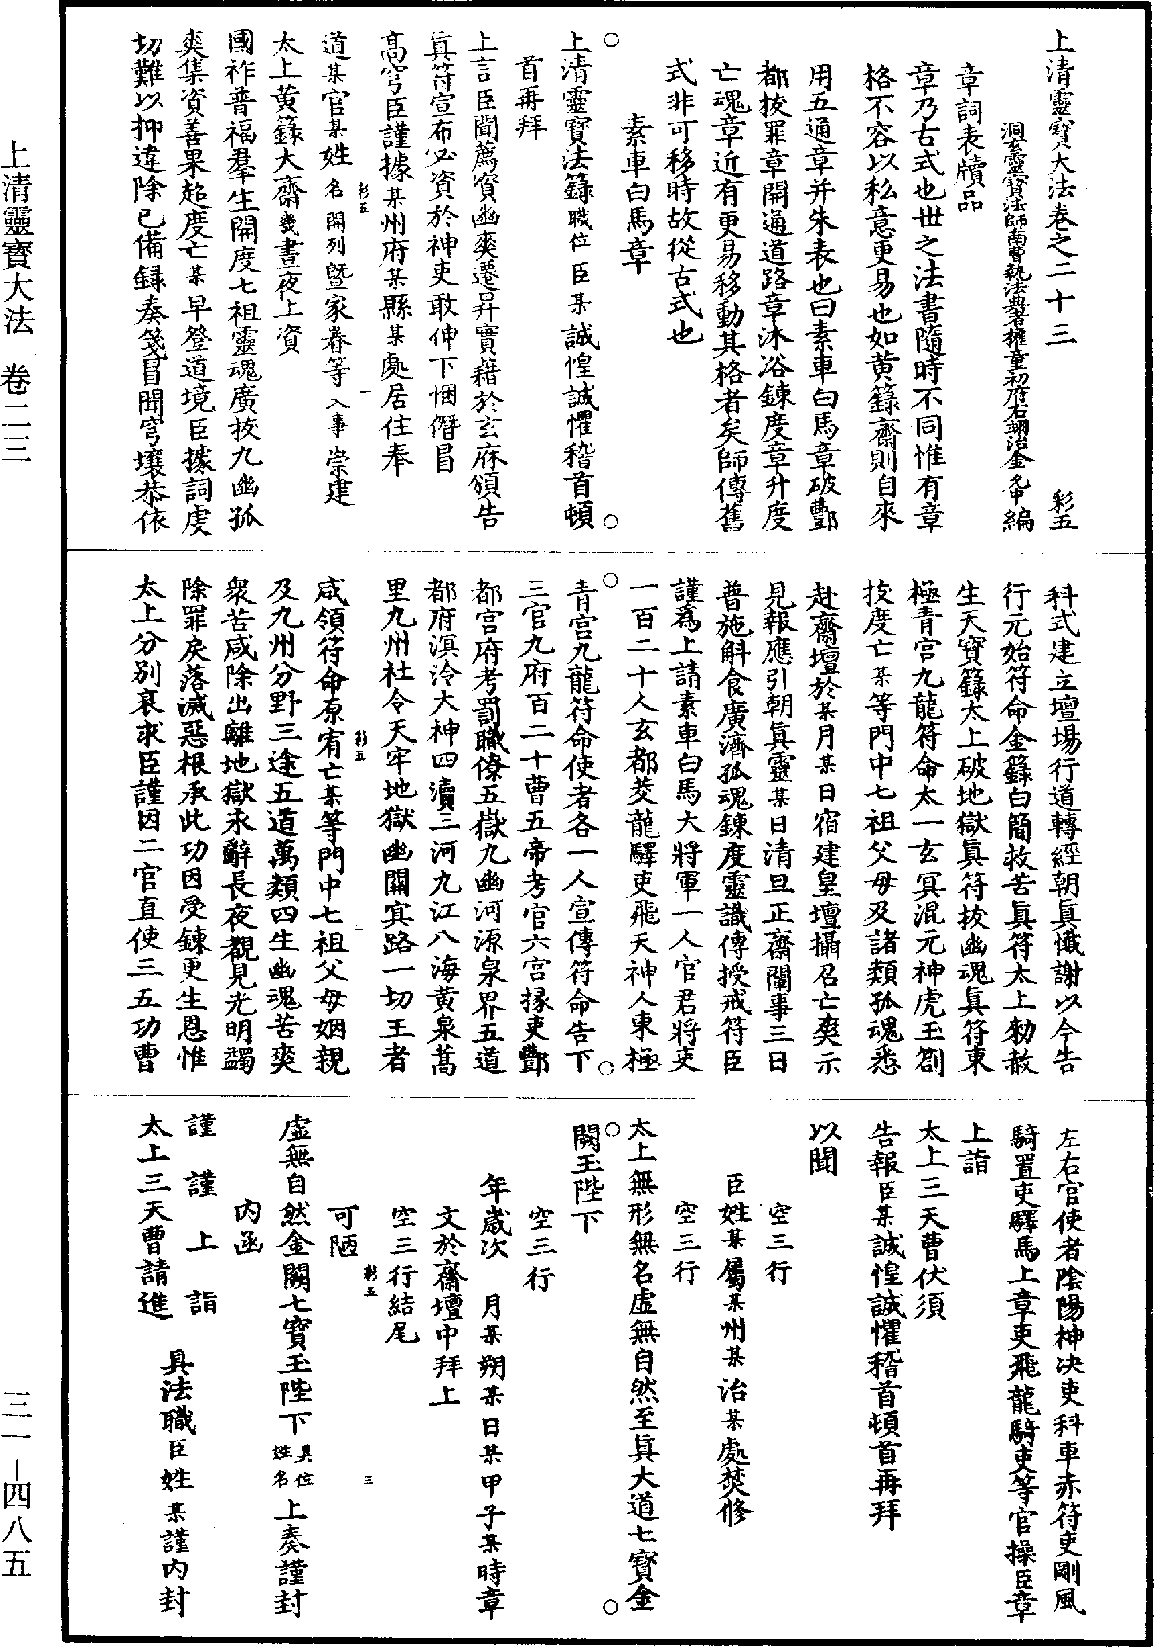 上清靈寶大法卷之二十三 彩五
洞玄靈寶法師南曹執法典者權童初府右翊治金允中編
章詞表牘品
章乃古式也世之法書隨時不同惟有章
格不容以私意更易也如黃籙齋則自來
用五通章并朱表也曰素車白馬章破酆
都拔罪章開通道路章沐浴鍊度章升度
亡魂章近有更易移動其格者矣師傳舊
式非可移時故從古式也
素車白馬章
上清靈寶法籙職位臣某誠惶誠懼稽首頓
首再拜
上言臣聞薦資幽爽遷昇實藉於玄庥頒告
眞符宣布必資於神吏敢伸下悃僭冒
高穹臣謹據某州府某縣某處居住奉
道某官某姓名開列曁家眷等入事崇建
太上黃籙大齋幾晝夜上資
國祚普福羣生開度七祖靈魂廣拔九幽孤
爽集資善果超度亡某早登道境臣據詞虔
切難以抑違除已備錄奏箋冒聞穹壤恭依
科式建立壇場行道轉經朝眞懺謝以今告
行元始符命金籙白簡救苦眞符太上勑赦
生天寶籙太上破地獄眞符拔幽魂眞符東
極青宮九龍符命太一玄冥混元神虎玉劄
拔度亡某等門中七祖父母及諸類孤魂悉
赴齋壇於某月某日宿建皇壇攝召亡爽示
見報應引朝眞靈某日清旦正齋關事三日
普施斛食廣濟孤魂鍊度靈識傳授戒符臣
謹爲上請素車白馬大將軍一人官君將吏
一百二十人玄都茭龍驛吏飛天神人東極
青宮九龍符命使者各一人宣傳符命告下
三官九府百二十曹五帝考官六宮掾吏酆
都宮府考罰職僚五嶽九幽河源泉界五道
都府溟泠大神四瀆三河九江八海黃泉蒿
里九州社令天牢地獄幽關冥路一切王者
咸領符命原宥亡某等門中七祖父母姻親
及九州分野三途五道萬類四生幽魂苦爽
衆苦咸除出離地獄永辭長夜覩見光明蠲
除罪戾落滅惡根承此功因受鍊更生恩惟
太上分別哀求臣謹因二官直使三五功曹
左右官使者陰陽神决吏科車赤符吏剛風
騎置吏驛馬上章吏飛龍騎吏等官操臣章
上詣
太上三天曹伏須
告報臣某誠惶誠懼稽首頓首再拜
以聞
空三行
臣姓某屬某州某治某處焚修
空三行
太上無形無名虛無自然至眞大道七寶金
闕玉陛下
空三行
年歲次　月某朔某日某甲子某時章
文於齋壇中拜上
空三行結尾
可陋
虛無自然金闕七寶玉陛下具位姓名上奏謹封
內函
謹謹上詣
太上三天曹請進　具法職臣姓某謹內封
上清靈寶大法 卷二三
三一–四八五